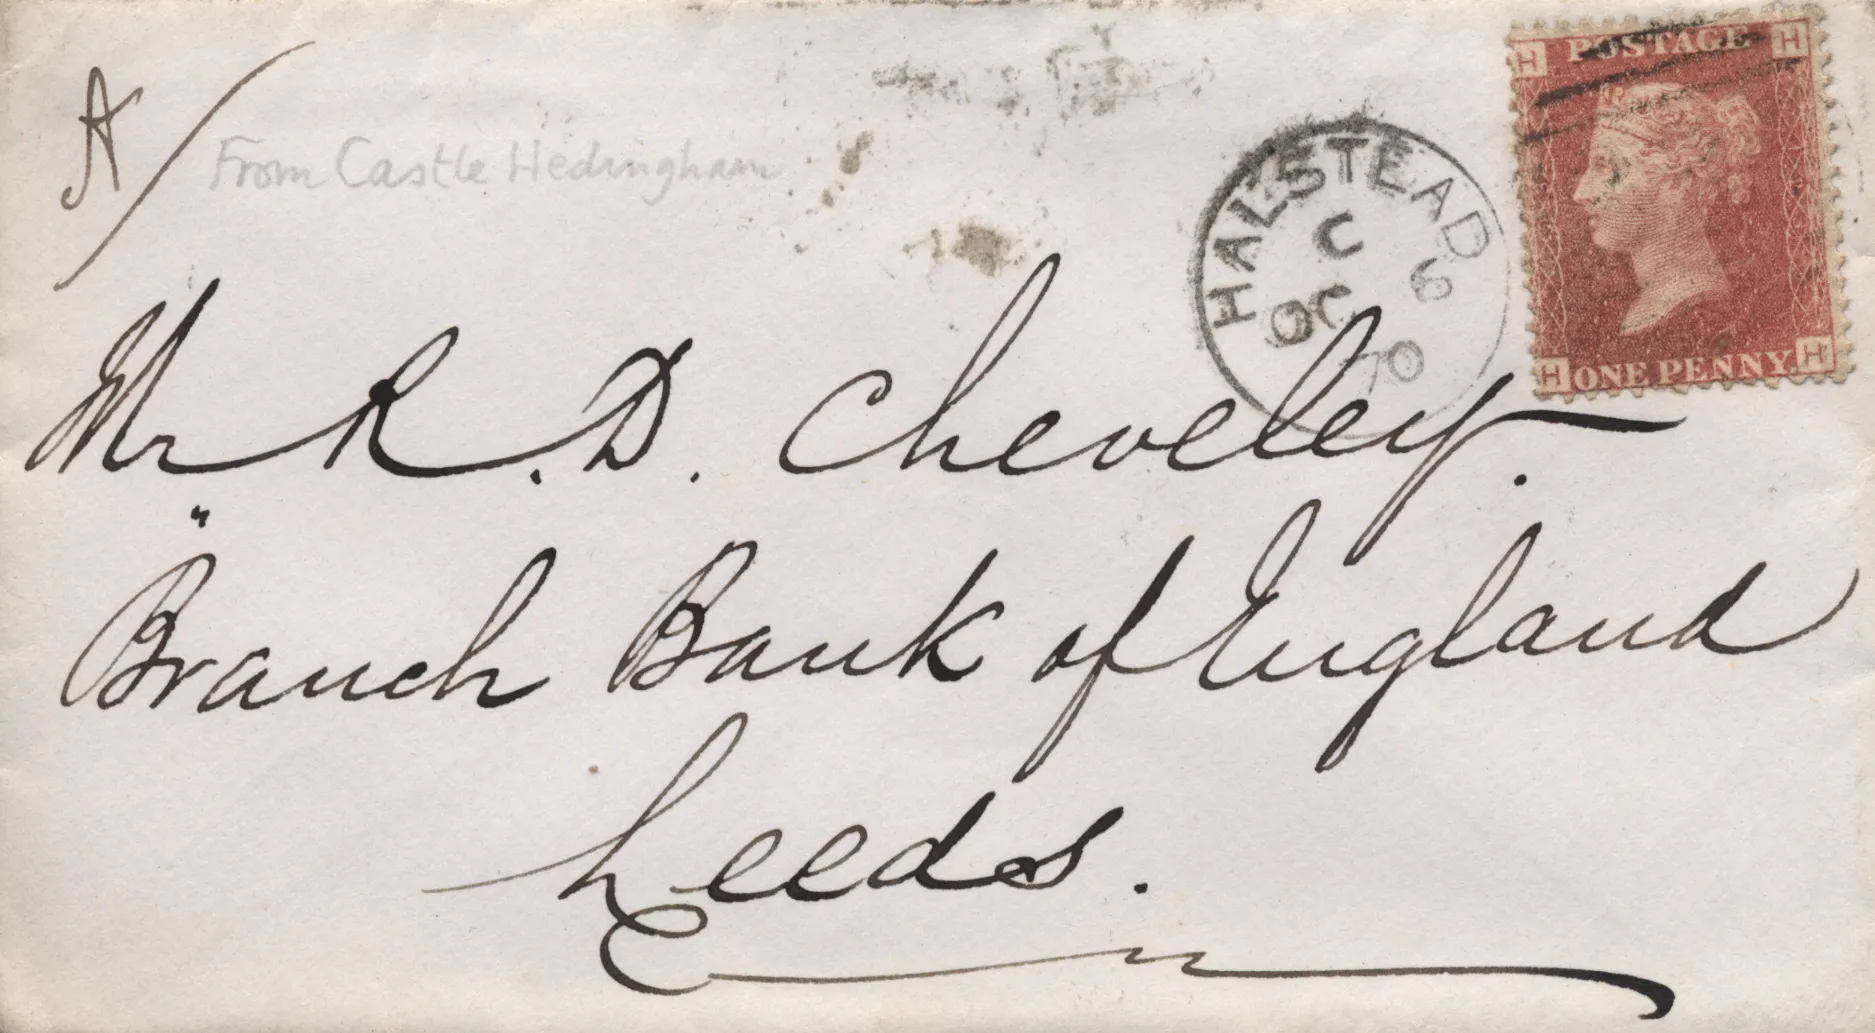 A/
From Castle Hedingham
Mr R. D. Cheveley.
"Branch Bank of England
Leeds.
HALSTEAD
C
OC 6
70
H POSTAGE H
H ONE PENNY H